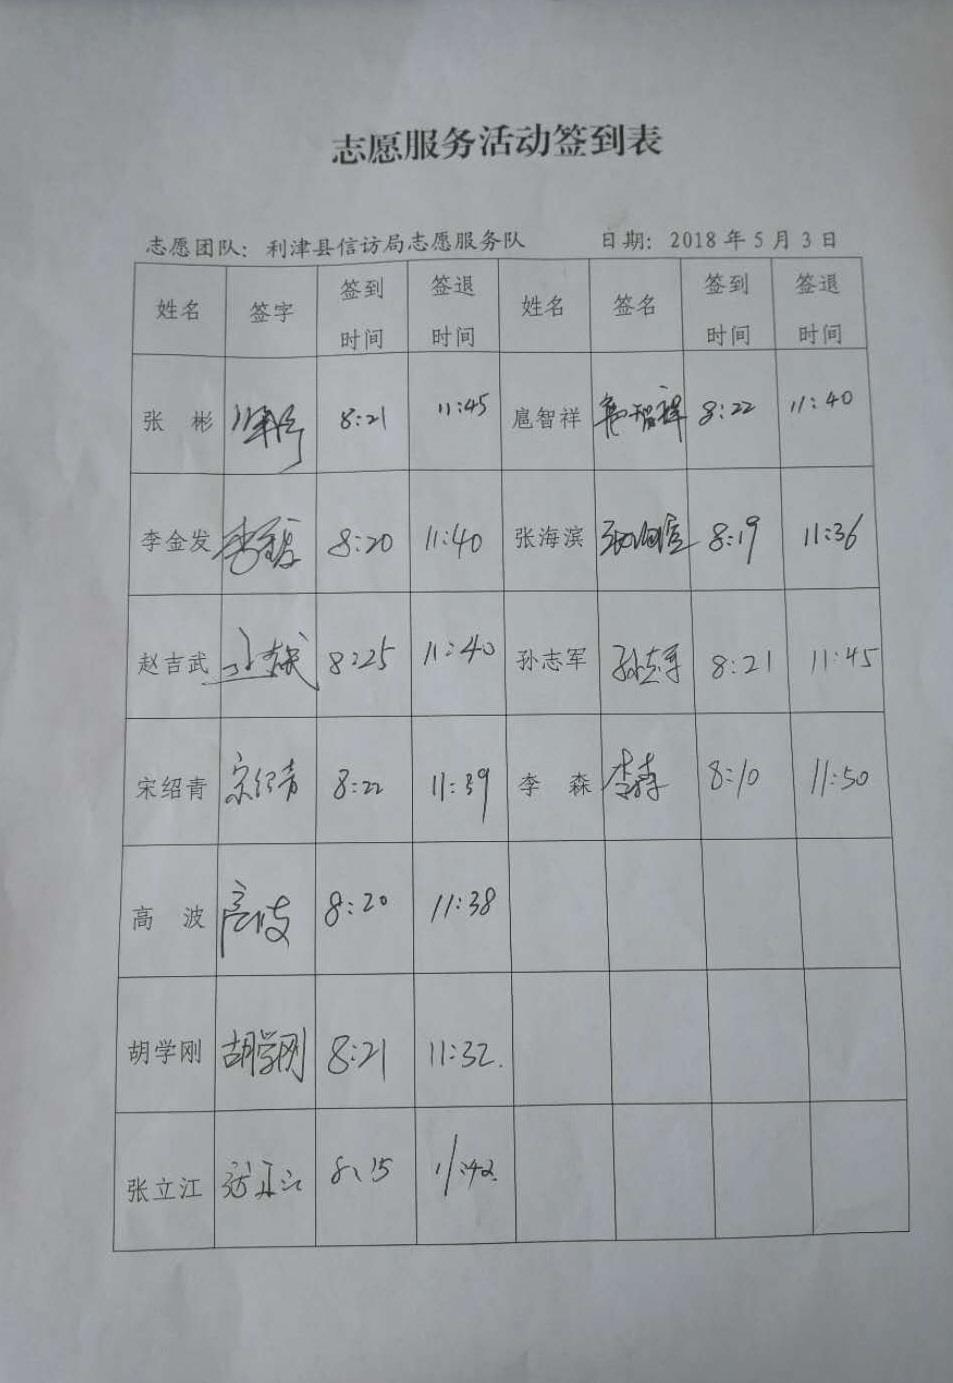 志愿服务活动签到表
志愿团队：利津县信访局志愿服务队 日期：2018年5月3日
姓名 签字 签到时间 签退时间 姓名 签名 签到时间 签退时间
张 彬 8:21 11:45 扈智祥 扈智祥 8:22 11:40
李金发 李金发 8:20 11:40 张海滨 张海滨 8:19 11:36
赵吉武 8:25 11:40 孙志军 孙志军 8:21 11:45
宋绍青 宋绍青 8:22 11:39 李 森 李森 8:10 11:50
高 波 高波 8:20 11:38
胡学刚 胡学刚 8:21 11:32.
张立江 张立江 8:15 11:42